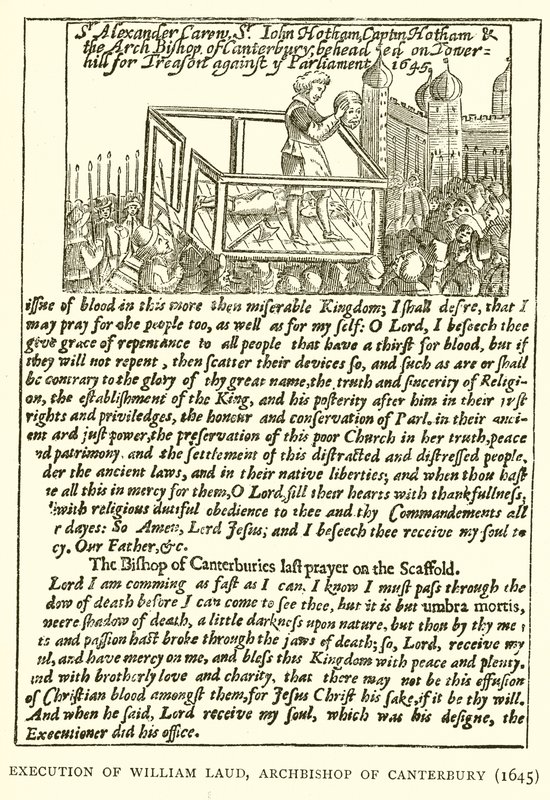 Sr Alexander Carew, Sr. Iohn Hotham, Captin Hotham &
the Arch Bishop of Canterbury, behead ed on Tower=
hill for Treason against ye Parliament 1645
issue of blood in this more then miserable Kingdom; I shall desire, that I
may pray for the people too, as well as for my self: O Lord, I beseech thee
give grace of repentance to all people that have a thirst for blood, but if
they will not repent, then scatter their devices so, and such as are or shall
be contrary to the glory of thy great name, the truth and sincerity of Religi-
on, the establishment of the King, and his posterity after him in their just
rights and priviledges, the honour and conservation of Parl. in their anci-
ent and just power, the preservation of this poor Church in her truth, peace
nd patrimony, and the settlement of this distracted and distressed people,
der the ancient laws, and in their native liberties; and when thou hast
ie all this in mercy for them, O Lord, fill their hearts with thankfullness,
with religious dutiful obedience to thee and thy Commandements all
r dayes: So Amen, Lord Jesus; and I beseech thee receive my soul to
cy. Our Father, &c.
The Bishop of Canterburies last prayer on the Scaffold.
Lord I am comming as fast as I can, I know I must pass through the
dow of death before I can come to see thee, but it is but umbra mortis,
neere shadow of death, a little darkness upon nature, but thou by thy me
ts and passion hast broke through the jaws of death; so, Lord, receive my
ul, and have mercy on me, and bless this Kingdom with peace and plenty,
and with brotherly love and charity, that there may not be this effusion
of Christian blood amongst them, for Jesus Christ his sake, if it be thy will.
And when he said, Lord receive my soul, which was his designe, the
Executioner did his office.
EXECUTION OF WILLIAM LAUD, ARCHBISHOP OF CANTERBURY (1645)